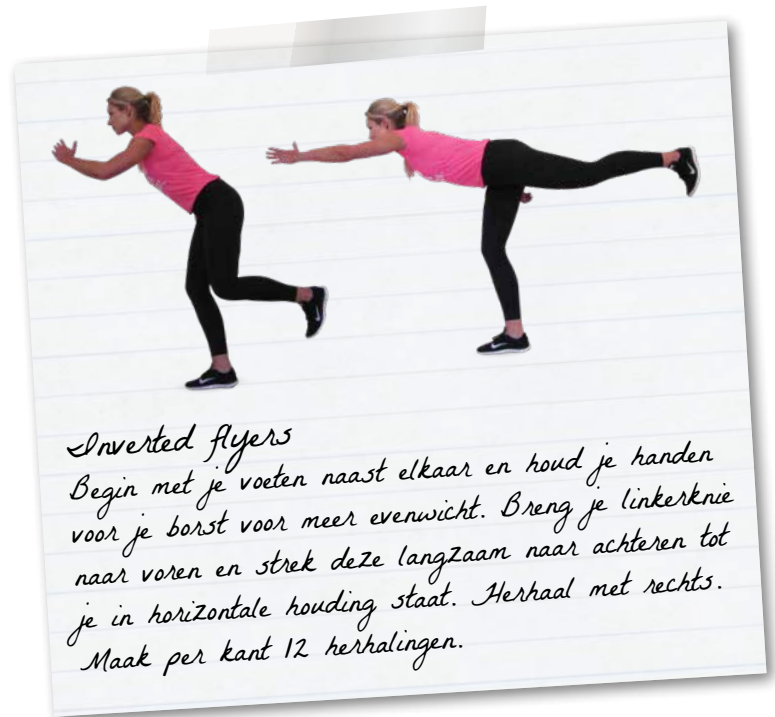 Inverted flyers
Begin met je voeten naast elkaar en houd je handen
voor je borst voor meer evenwicht. Breng je linkerknie
naar voren en strek deze langzaam naar achteren tot
je in horizontale houding staat. Herhaal met rechts.
Maak per kant 12 herhalingen.